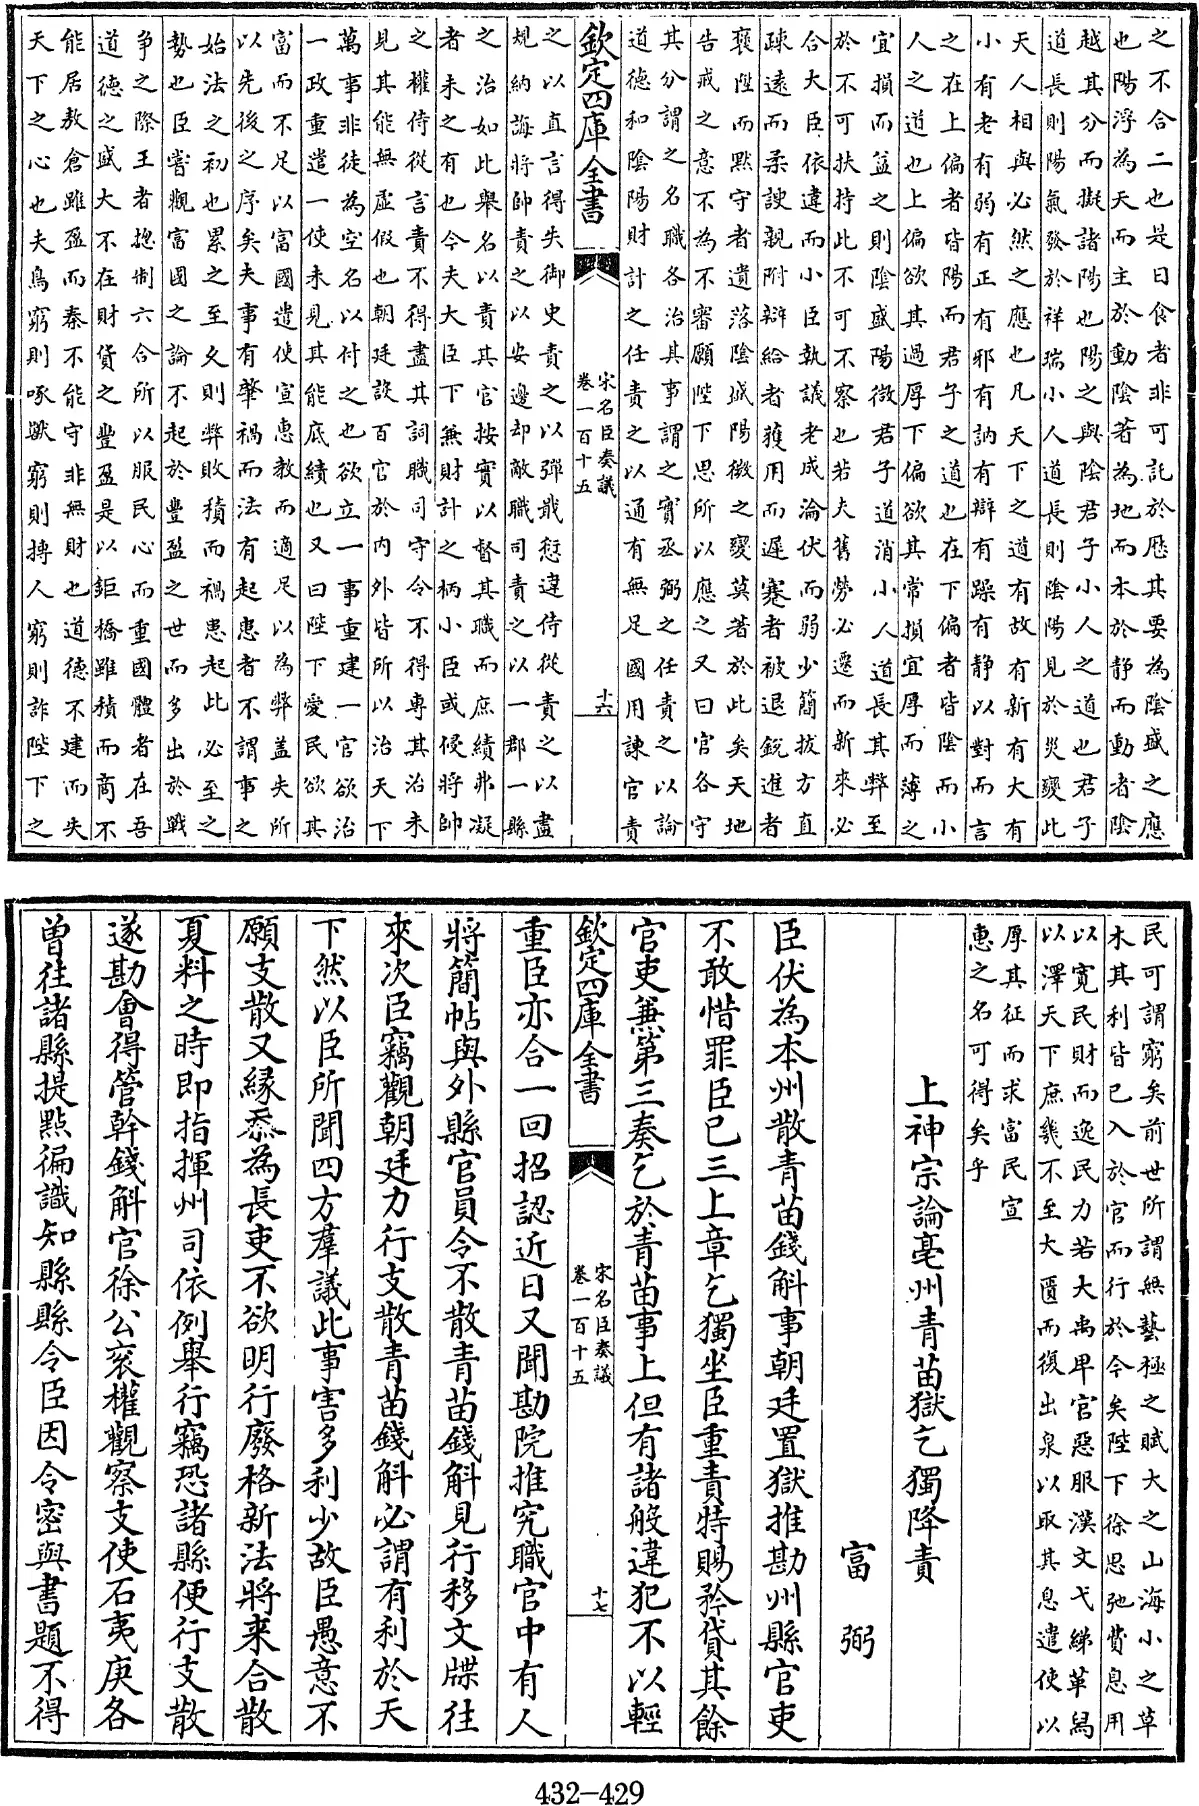 之不合二也是日食者非可託於厯其要為陰盛之應
也陽浮為天而主於動陰著為地而本於静而動者陰
越其分而擬諸陽也陽之與陰君子小人之道也君子
道長則陽氣發於祥瑞小人道長則陰陽見於災變此
天人相與必然之應也凡天下之道有故有新有大有
小有老有弱有正有邪有訥有辯有躁有静以對而言
之在上偏者皆陽而君子之道也在下偏者皆陰而小
人之道也上偏欲其過厚下偏欲其常損宜厚而薄之
宜損而益之則陰盛陽微君子道消小人道長其弊至
於不可扶持此不可不察也若夫舊勞必遷而新來必
合大臣依違而小臣執議老成淪伏而弱少簡拔方直
疎遠而柔諛親附辯給者獲用而遲蹇者被退鋭進者
褒陞而黙守者遺落陰盛陽微之變莫著於此矣天地
告戒之意不為不審願陛下思所以應之又曰官各守
其分謂之名職各治其事謂之實丞弼之任責之以論
道德和陰陽財計之任責之以通有無足國用諫官責
欽定四庫全書
宋名臣奏議
卷一百十五
十六
之以直言得失御史責之以彈戢愆違侍從責之以盡
規納誨將帥責之以安邊却敵職司責之以一郡一縣
之治如此舉名以責其官按實以督其職而庶績弗凝
者未之有也今夫大臣下兼財計之柄小臣或侵將帥
之權侍從言責不得盡其詞職司守令不得專其治未
見其能無虚假也朝廷設百官於内外皆所以治天下
萬事非徒為空名以付之也欲立一事重建一官欲治
一政重遣一使未見其能底績也又曰陛下愛民欲其
富而不足以富國遣使宣惠教而適足以為弊蓋失所
以先後之序矣夫事有肇禍而法有起患者不謂事之
始法之初也累之至久則弊敗積而禍患起此必至之
勢也臣嘗觀富國之論不起於豐盈之世而多出於戰
争之際王者揔制六合所以服民心而重國體者在吾
道德之盛大不在財貨之豐盈是以鉅橋雖積而商不
能居敖倉雖盈而秦不能守非無財也道德不建而失
天下之心也夫鳥窮則啄獸窮則搏人窮則詐陛下之
民可謂窮矣前世所謂無藝極之賦大之山海小之草
木其利皆已入於官而行於今矣陛下徐思弛費息用
以寛民財而逸民力若大禹卑官惡服漢文弋綈革舄
以澤天下庶幾不至大匱而復出泉以取其息遣使以
厚其征而求富民宣
惠之名可得矣乎
上神宗論亳州青苗獄乞獨降責
富弼
臣伏為本州散青苗錢斛事朝廷置獄推勘州縣官吏
不敢惜罪臣已三上章乞獨坐臣重責特賜矜貸其餘
官吏兼第三奏乞於青苗事上但有諸般違犯不以輕
欽定四庫全書
宋名臣奏議
卷一百十五
十七
重臣亦合一回招認近日又聞勘院推究職官中有人
將簡帖與外縣官員令不散青苗錢斛見行移文牒往
來次臣竊觀朝廷力行支散青苗錢斛必謂有利於天
下然以臣所聞四方羣議此事害多利少故臣愚意不
願支散又縁忝為長吏不欲明行廢格新法將来合散
夏料之時即指揮州司依例舉行竊恐諸縣便行支散
遂勘會得管幹錢斛官徐公衮權觀察支使石夷庚各
曽往諸縣提點徧識知縣縣令臣因令密與書題不得
432-429